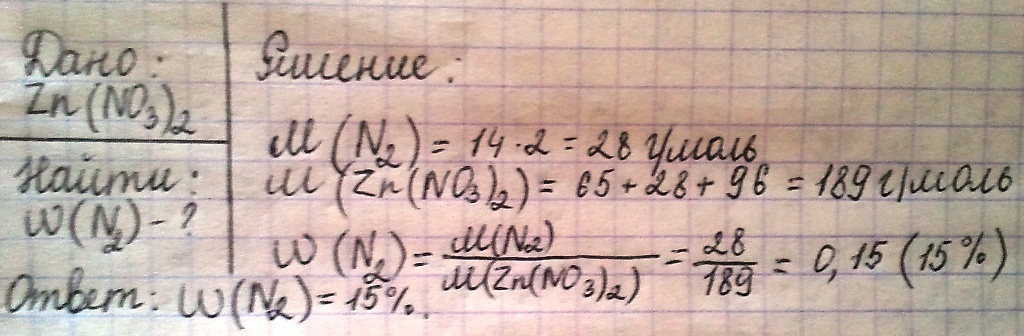 Дано:
Zn(NO3)2
Найти:
W(N2)-?
Решение:
M(N2) = 14·2 = 28 г/моль
M(Zn(NO3)2) = 65+28+96 = 189 г/моль
W(N2) = M(N2)/M(Zn(NO3)2) = 28/189 = 0,15 (15%)
Ответ: W(N2) = 15%.